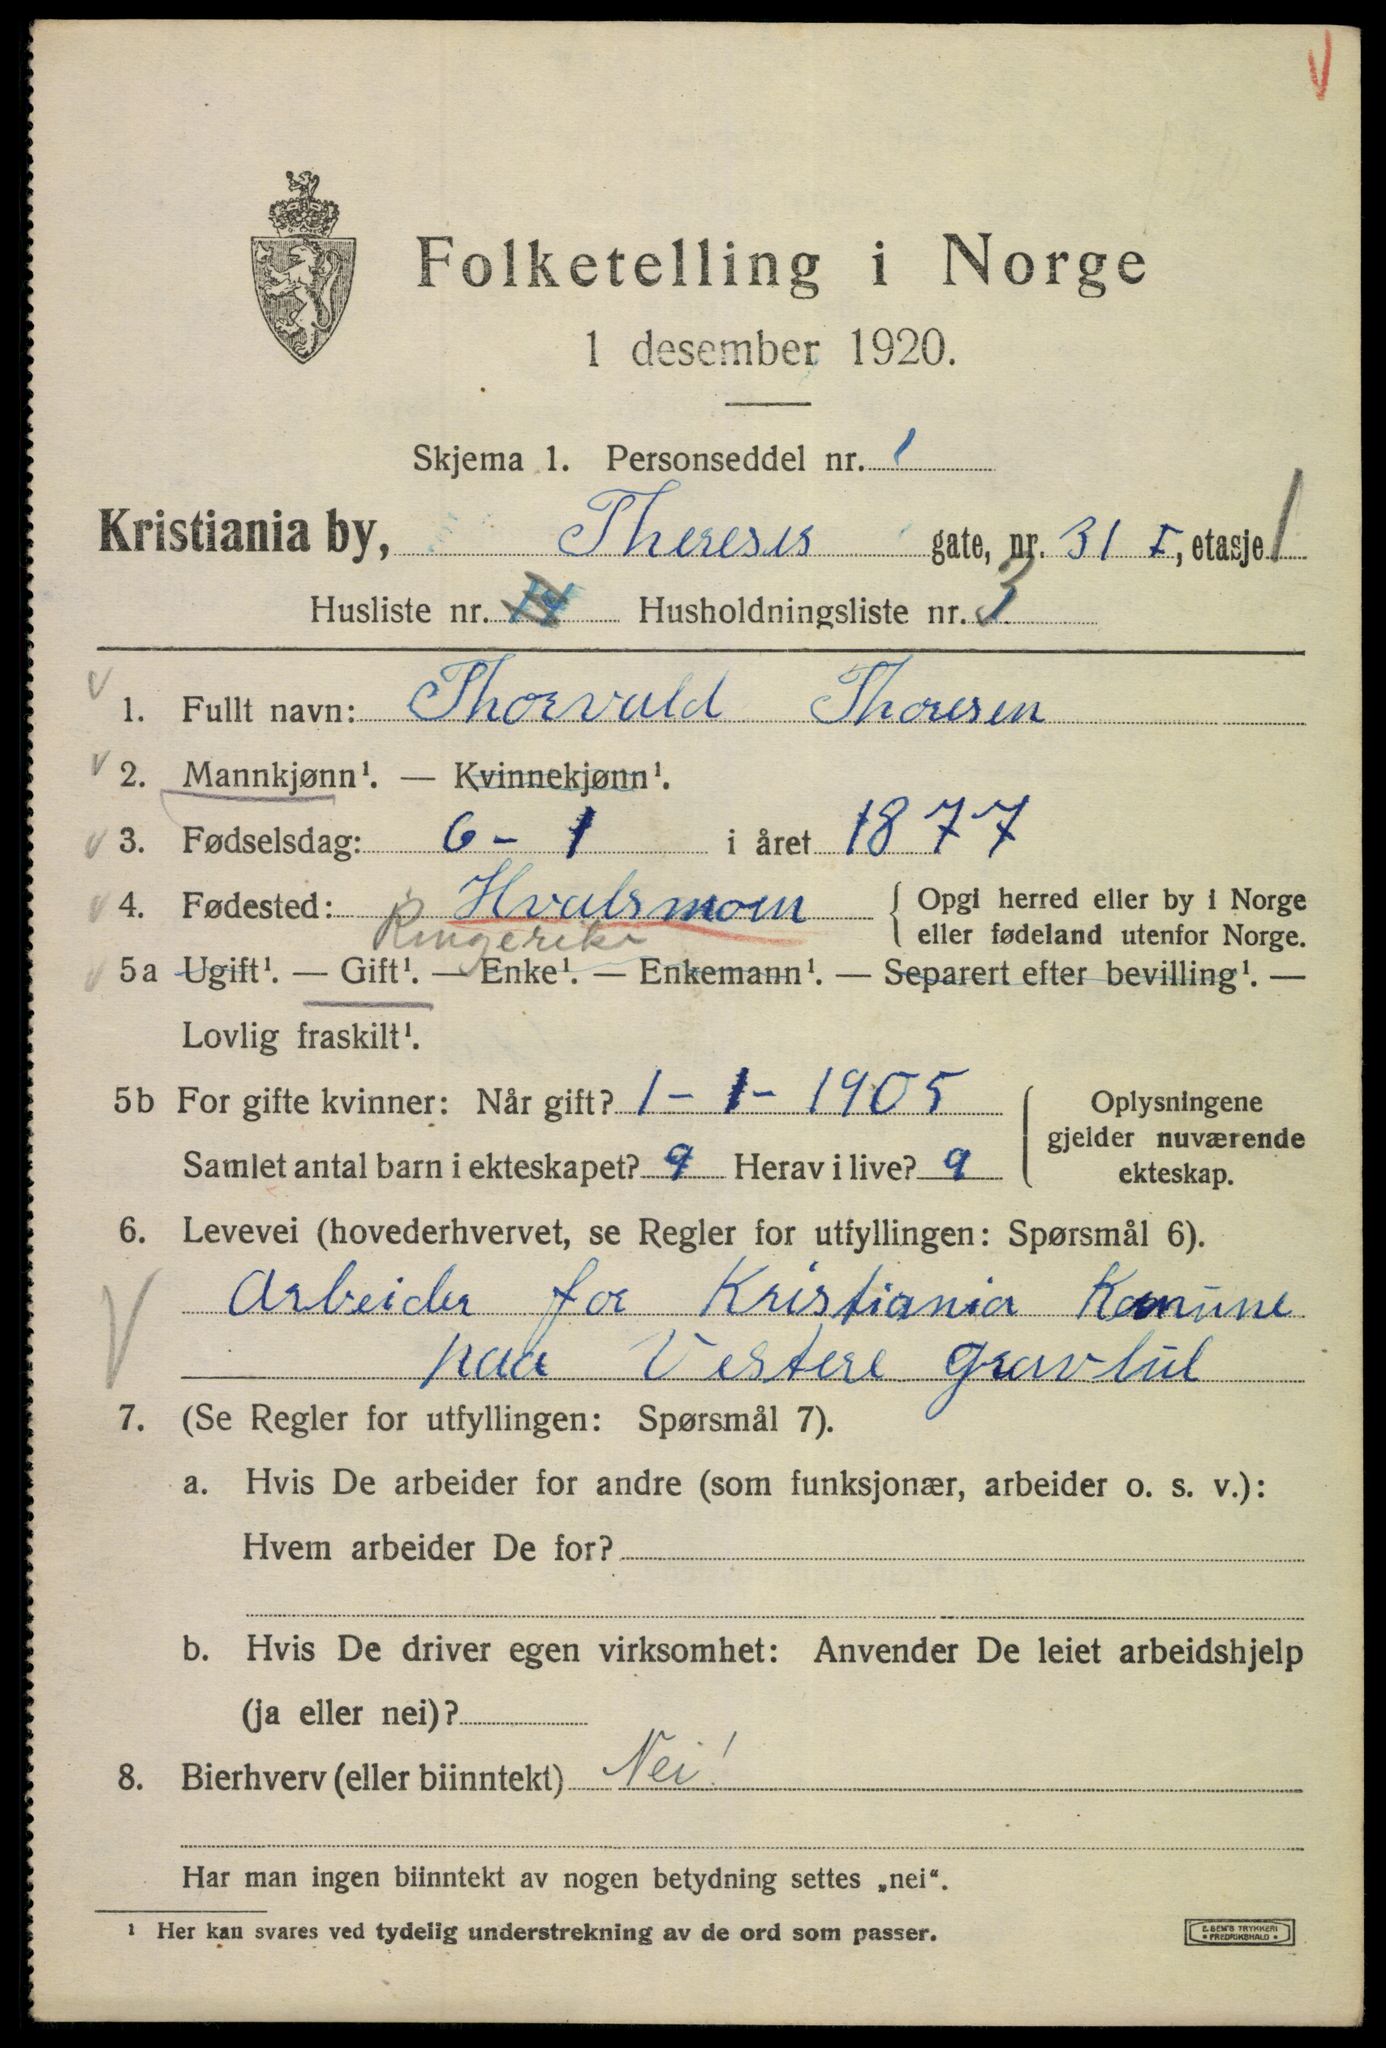 Folketelling i Norge
1 desember 1920.
Skjema 1. Personseddel nr. 1
Kristiania by, Thereses gate, nr. 31 I, etasje 1
Husliste nr. Husholdningsliste nr. 3
1. Fullt navn: Thorvald Thoresen
2. Mannkjønn¹. — Kvinnekjønn¹.
3. Fødselsdag: 6 - 1 i året 1877
4. Fødested: Hvalsmoen { Opgi herred eller by i Norge
Ringerike eller fødeland utenfor Norge.
5a Ugift¹. — Gift¹. — Enke¹. — Enkemann¹. — Separert efter bevilling¹. —
Lovlig fraskilt¹.
5b For gifte kvinner: Når gift? 1 - 1 - 1905 { Oplysningene
gjelder nuværende
Samlet antal barn i ekteskapet? 9 Herav i live? 9 ekteskap.
6. Levevei (hovederhvervet, se Regler for utfyllingen: Spørsmål 6).
Arbeider for Kristiania Komune
paa Vestere Gravlul
7. (Se Regler for utfyllingen: Spørsmål 7).
a. Hvis De arbeider for andre (som funksjonær, arbeider o. s. v.):
Hvem arbeider De for?
b. Hvis De driver egen virksomhet: Anvender De leiet arbeidshjelp
(ja eller nei)?
8. Bierhverv (eller biinntekt) Nei!
Har man ingen biinntekt av nogen betydning settes „nei".
¹ Her kan svares ved tydelig understrekning av de ord som passer.
E. SEM'S TRYKKERI
• FREDRIKSHALD •